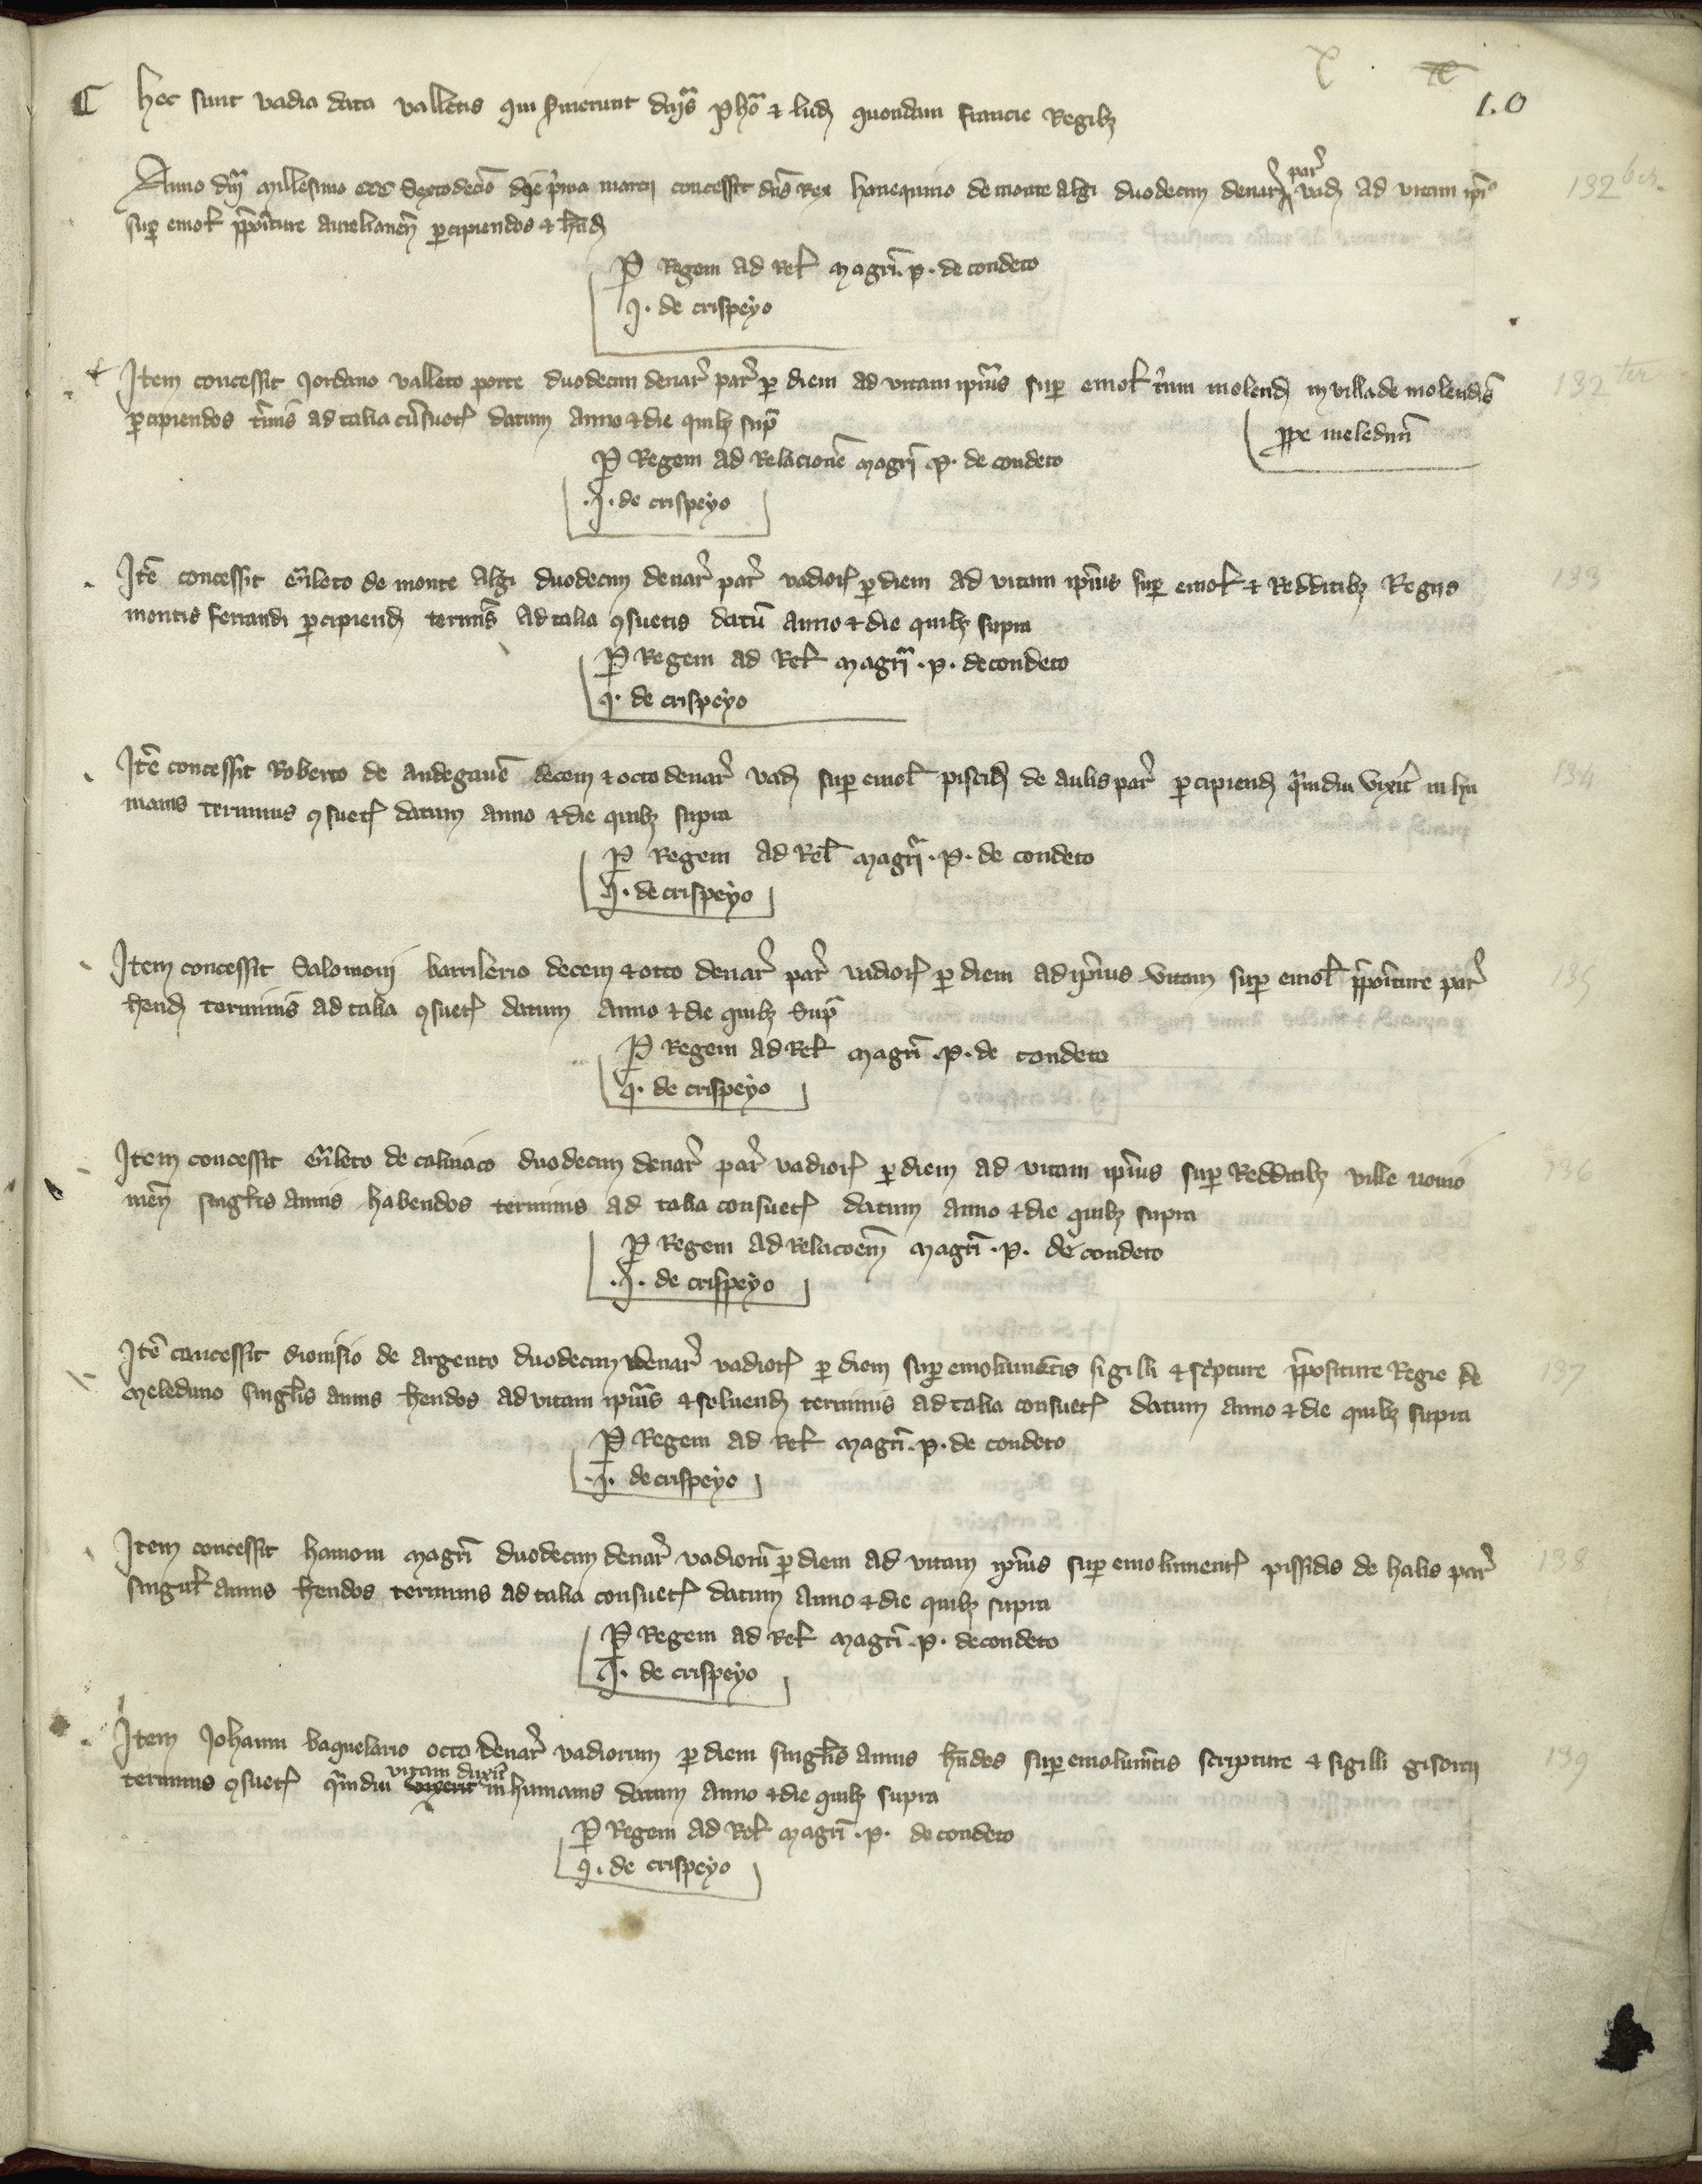 x
1.0
hec sunt vadia data valletis qui s̃vierunt dn̄is pho & lud quondam francie Regib
Anno dn̄i millesimo ccc sextodecio die p̄ma marcij concessit dn̄s Rex hanequino de monte algi duodecim denar̄ par̄ vad ad vitam ipi9
132 ber
sup emol p̄poīture aurelianen̄ pcipiendos & hn̄d
P Regem ad Rel magri. p. de condeto
J. de crispeyo
Item concessit Jordano valleto porte duodecim denar̄ par̄ p diem ad vitam ipīus sup emol molend in villa de molendis
132 ter
pcipiendos t̄mis ad talia cūsuet datum anno & die quib sup̄
ppe meledun̄
P Regem ad Relacionē magri p. de condeto
.J. de crispeyo
Itē concessit de monte algi duodecim denar̄ par̄ vadior p diem ad vitam ipīus sup emol & Redditib Regijs
133
montis ferrandi pcipiend termīs ad talia 9suetis datū anno & die quib supra
P Regem ad Rel magri. p. de condeto
J. de crispeyo
Itē concessit Roberto de andegauē decem & octo denar̄ vad sup emol piscid de aulis par̄ pcipiend q̄mdiu vixit̄ in hu
134
manis terminis 9suet datum anno & die quib supra
P Regem ad Rel magri. p. de condeto
J. de crispeyo
Item concessit Salomoni barrilerio decem & octo denar̄ par̄ vadior p diem ad ipīus vitam sup emol p̄poīture par̄
135
hend terminis ad talia 9suet datum anno & die quib sup̄
P Regem ad Rel magri. p. de condeto
J. de crispeyo
Item concessit de calniaco duodecim denar̄ par̄ vadior p diem ad vitam ipīus sup Redditib ville nouio
136
men̄ singlis annis habendos terminis ad talia consuet datum anno & die quib supra
P Regem ad Relacoem̄ magri. p. de condeto
.J. de crispeyo
Itē concessit dionisio de argento duodecim denar̄ vadior p diem sup emolumētis sigilli & sc̄pture p̄positure Regie de
137
meleduno singlis annis hendos ad vitam ipīus & soluend terminis ad talia consuet datum anno & die quib supra
P Regem ad Rel magri. p. de condeto
.J. de crispeyo
Item concessit hamoni magri duodecim denar̄ vadiorū p diem ad vitam ipīus sup emolument pissidis de halis par̄
138
singul annis hendos terminis ad talia consuet datum anno & die quib supra
P Regem ad Rel magri. p. de condeto
J. de crispeyo
Item Johanni baquelario octo denar̄ vadiorum p diem singlis annis hn̄dos sup emolum̄tis scripture & sigilli gisorcij
139
terminis 9suet q̄mdiu vitam duxit̄ in humanis datum anno & die quib supra
P Regem ad Rel magri. p. de condeto
J. de crispeyo